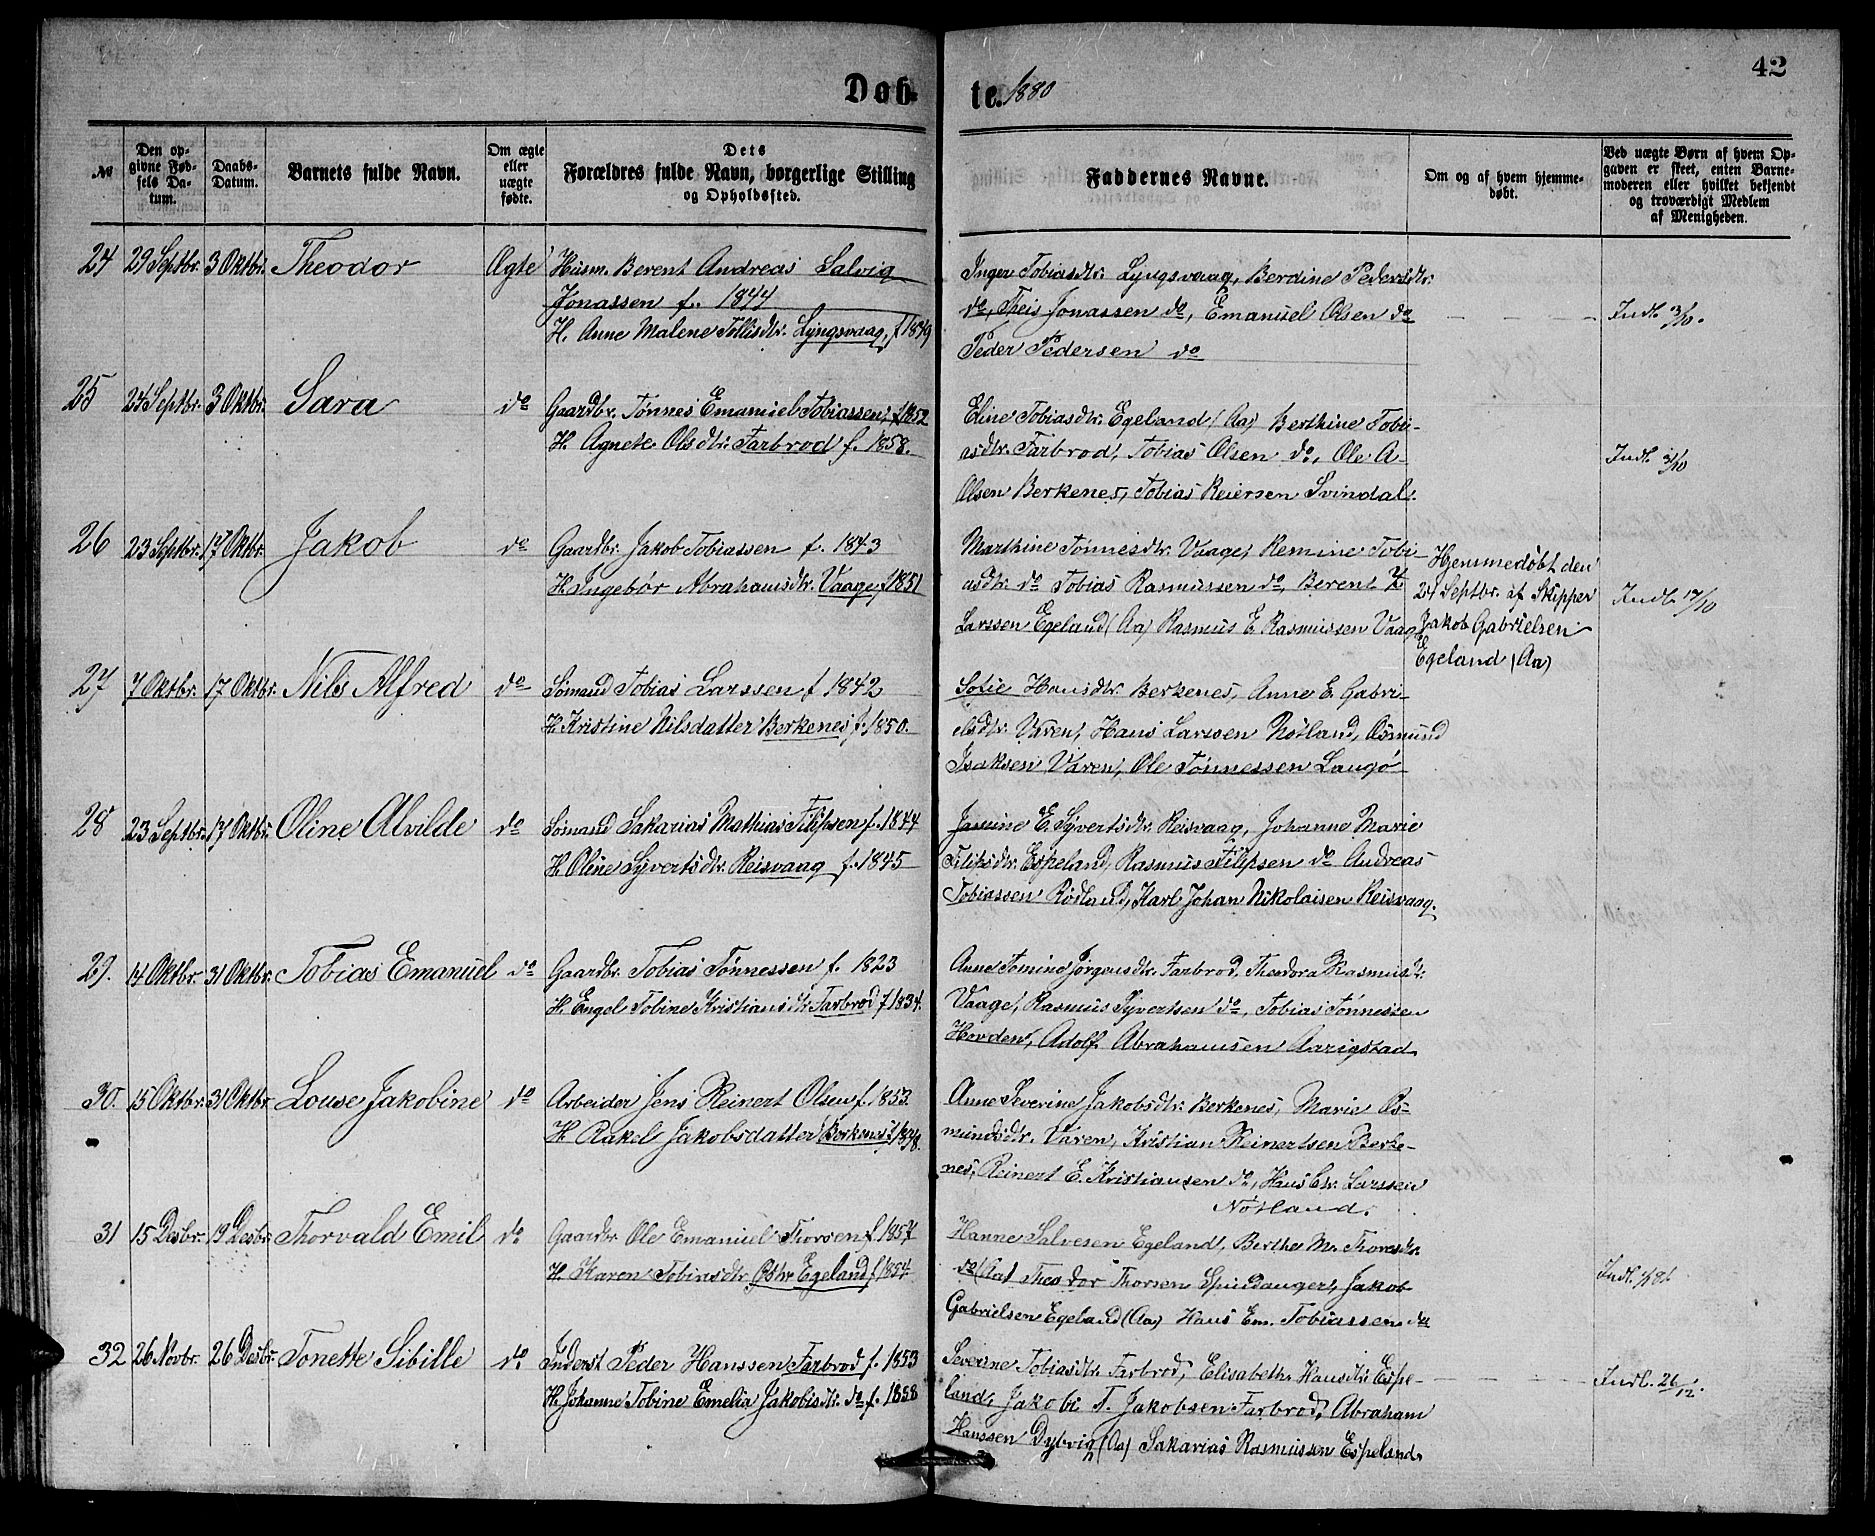 Døb-
te. 1880
42
№
Den op-
givne Fød-
sels Da-
tum.
Daabs-
Datum.
Barnets fulde Navn.
Om ægte
eller
uægte
fødte.
Dets
Forældres fulde Navn, borgerlige Stilling
og Opholdssted.
Faddernes Navne.
Om og af hvem hjemme-
døbt.
Ved uægte Børn af hvem Op-
gaven er skeet, enten Barne-
moderen eller hvilket bekjendt
og troværdigt Medlem
af Menigheden.
24 29 Septbr. 3 Oktbr. Theodor Ægte
Husm. Berent Andreas Salvig
Jonassen f. 1844
H. Anne Malene Tollisdtr. Lyngsvaag, f 1849
Inger Tobiasdtr. Lyngsvaag, Berdine Pedersdtr.
do, Theis Jonassen do, Emanuel Olsen do
Peder Pedersen do
Indl. 3/10.
25 24 Septbr. 3 Oktbr. Sara do
Gaardbr. Tønnes Emanuel Tobiassen, f 1852
H. Agnete Olsdtr. Farbrod f. 1858.
Eline Tobiasdtr. Egeland (Aa) Berthine Tobi-
asdtr. Farbrod, Tobias Olsen do, Ole A-
Olsen Berkenes, Tobias Reiersen Svindal.
Indl. 3/10
26 23 Septbr. 17 Oktbr. Jakob do
Gaardbr. Jakob Tobiassen f. 1843
H. Ingebør Abrahamsdtr. Vaage f 1851
Marthine Tønnesdtr. Vaage, Remine Tobi-
asdtr. do Tobias Rasmussen do, Berent
Larssen Egeland (Aa) Rasmus E. Rasmussen Vaag
Hjemmedøbt den
24 Septbr. af Skipper
Jakob Gabrielsen
Egeland (Aa)
Indl. 17/10
27 7 Oktbr. 17 Oktbr. Nils Alfred do
Sømand Tobias Larssen f 1842
H. Kristine Nilsdatter Berkenes f. 1850.
Sofie Hansdtr. Berkenes, Anne E. Gabri-
elsdtr. Varen, Hans Larssen Nøtland, Osmund
Isaksen Varen, Ole Tønnessen Langø
28 23 Septbr. 17 Oktbr. Oline Alvilde do
Sømand Sakarias Mathias Filipsen f. 1844
H. Oline Syvertsdtr. Reisvaag f. 1845
Jasmine E. Syvertsdtr. Reisvaag, Johanne Marie
Filipsdtr. Espeland, Rasmus Filipsen do Andreas
Tobiassen Rødland, Karl Johan Nikolaisen Reisvaag.
29. 14 Oktbr. 31 Oktbr. Tobias Emanuel do
Gaardbr. Tobias Tønnessen f. 1823
H. Engel Tobine Kristiansdtr. Farbrod f 1834.
Anne Tomine Jørgensdtr. Farbrod, Theodora Rasmusdtr.
Vaage, Rasmus Syvertsen do, Tobias Tønnessen
Hovden, Adolf Abrahamsen Aarigstad
30. 15 Oktbr. 31 Oktbr. Louse Jakobine do
Arbeider Jens Reinert Olsen f. 1853.
H. Rakel Jakobsdatter Berkenes f 1848.
Anne Severine Jakobsdtr. Berkenes, Marie Os-
mundsdtr. Varen, Kristian Reinertsen Berke-
nes, Reinert E. Kristiansen do, Hans Chr. Larssen
Nøtland.
31 15 Desbr. 19 Desbr. Thorvald Emil do
Gaardbr Ole Emanuel Thorsen f 1857
H. Karen Tobiasdtr. Østre Egeland f 1854
Hanne Salvesen Egeland, Berthe M. Thorsdtr
do (Aa) Theodor Thorsen Spindanger, Jakob
Gabrielsen Egeland (Aa) Hans Em. Tobiassen do
32 26 Novbr. 26 Desbr Tonette Sibille do
Inderst Peder Hanssen Farbrod f. 1853
H. Johanne Tobine Emelia Jakobsdtr. do f. 1858
Severine Tobiasdtr. Farbrod, Elisabeth Hansdtr. Espe-
land, Jakobi T. Jakobsen Farbrod, Abraham
Hanssen Dybvig (Aa) Sakarias Rasmussen Espeland.
Indl. 26/12.